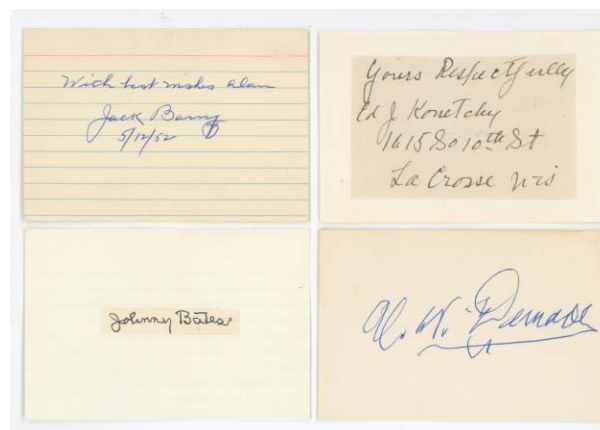 With best wishes Alan
Jack Barry
5/12/52
Yours Respectfully
Ed J. Konetchy
1615 So 10th St
La Crosse Wis
Johnny Bates
Al. W. Demaree